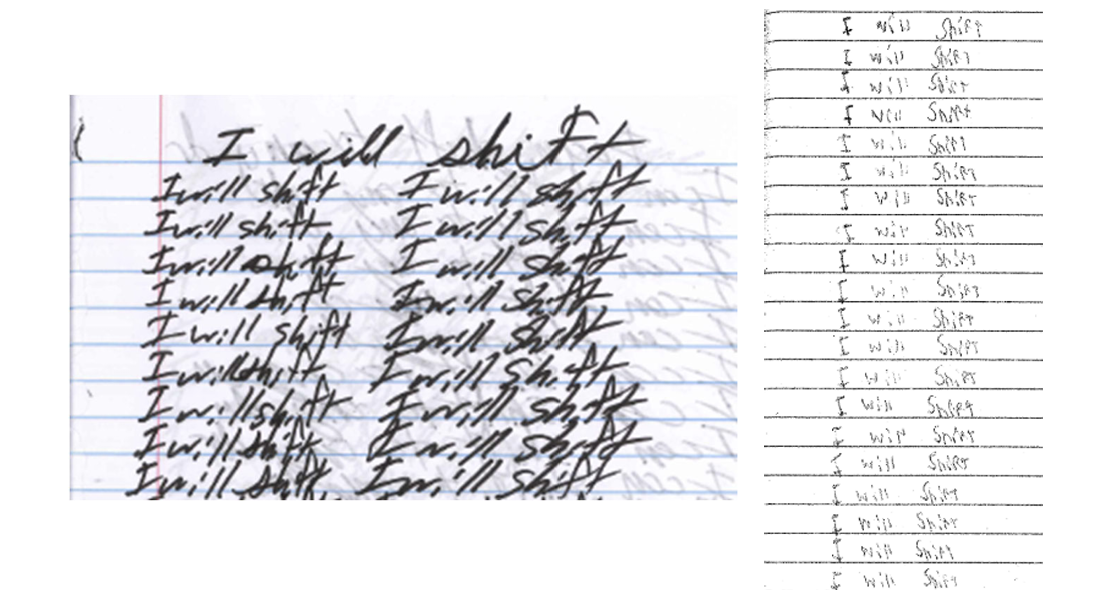 I will shift
I will shift I will shift
I will shift I will shift
I will shift I will shift
I will shift I will shift
I will shift I will shift
I will shift I will shift
I will shift I will shift
I will shift I will shift
I will shift I will shift
I will Shift
I will Shift
I will Shift
I will Shift
I will Shift
I will Shift
I will Shift
I will Shift
I will Shift
I will Shift
I will Shift
I will Shift
I will Shift
I will Shift
I will Shift
I will Shift
I will Shift
I will Shift
I will Shift
I will Shift